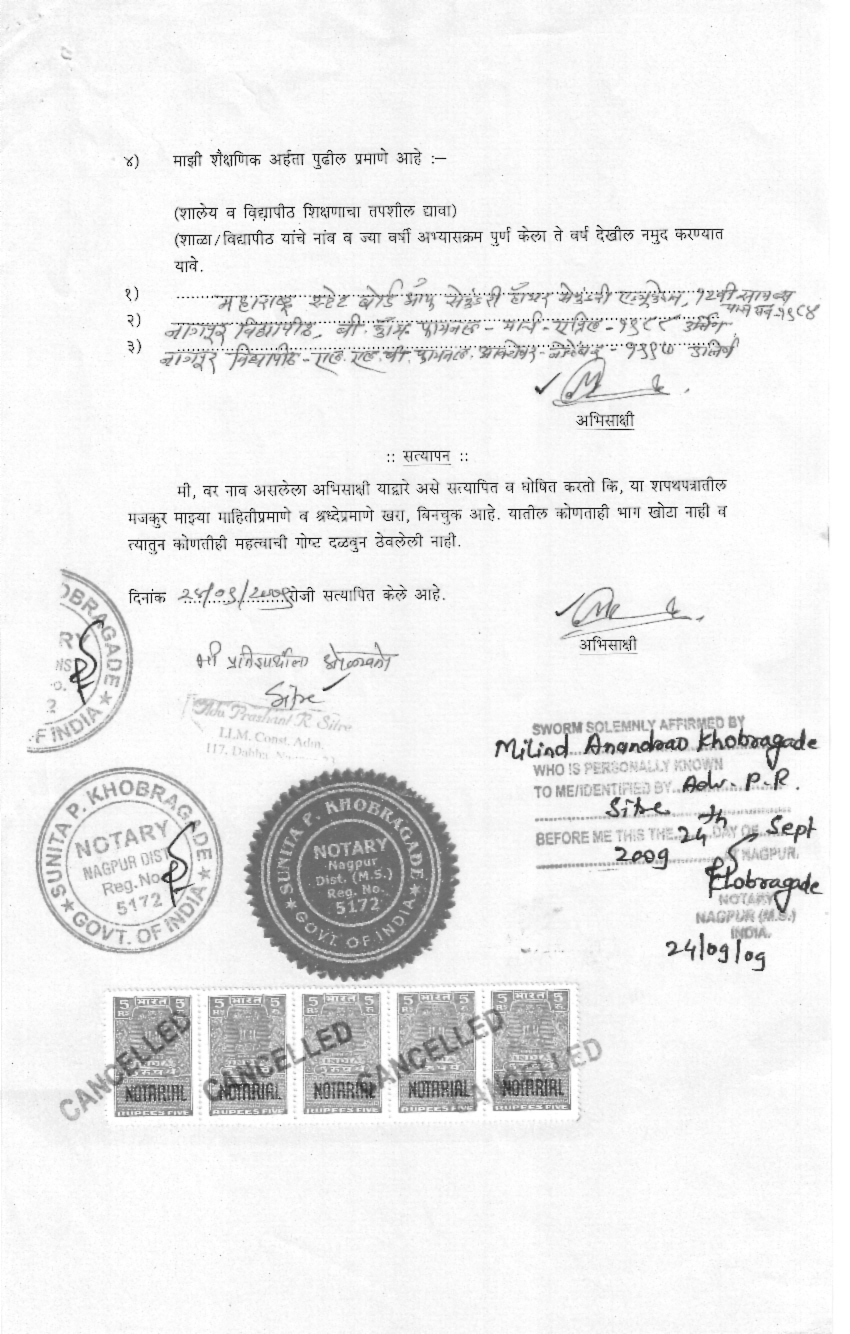 ४) माझी शैक्षणिक अर्हता पुढील प्रमाणे आहे :–
(शालेय व विद्यापीठ शिक्षणाचा तपशील द्यावा)
(शाळा/विद्यापीठ यांचे नांव व ज्या वर्षी अभ्यासक्रम पुर्ण केला ते वर्ष देखील नमुद करण्यात
यावे.
१) महाराष्ट्र स्टेट बोर्ड ऑफ सेकंडरी हॉयर सेकंडरी एज्युकेशन, १२वी सामान्य
१९८४
२) नागपूर विद्यापीठ, बी. कॉम. फायनल - मार्च - एप्रिल - १९८८
३) नागपूर विद्यापीठ - एल. एल. बी. फायनल. ऑक्टोबर - नोव्हेंबर - १९९७
अभिसाक्षी
:: सत्यापन ::
मी, वर नाव असलेला अभिसाक्षी याद्वारे असे सत्यापित व घोषित करतो कि, या शपथपत्रातील
मजकुर माझ्या माहितीप्रमाणे व श्रध्देप्रमाणे खरा, बिनचुक आहे. यातील कोणताही भाग खोटा नाही व
त्यातुन कोणतीही महत्वाची गोष्ट दळवुन ठेवलेली नाही.
दिनांक २४/०९/२००९ रोजी सत्यापित केले आहे.
अभिसाक्षी
मी प्रतिज्ञार्थीला ओळखतो
Sitre
Adv. Prashant R. Sitre
LL.M. Const. Adm.
117, Dabha,
OBRAGADE
RY
NS
O.
2
F INDIA
SWORM SOLEMNLY AFFIRMED BY
Milind Anandrao Khobragade
WHO IS PERSONALLY KNOWN
TO ME/IDENTIFIED BY Adv. P.R.
Sitre
BEFORE ME THIS THE 24th DAY OF Sept
2009 AT NAGPUR.
Khobragade
NOTARY
NAGPUR (M.S.)
INDIA.
24/09/09
SUNITA P. KHOBRAGADE
NOTARY
NAGPUR DIST
Reg.No.
5172
GOVT. OF INDIA
SUNITA P. KHOBRAGADE
NOTARY
Nagpur
Dist. (M.S.)
Reg. No.
5172
GOVT. OF INDIA
5 भारत 5 5 भारत 5 5 भारत 5 5 भारत 5 5 भारत 5
CANCELLED CANCELLED CANCELLED CANCELLED
NOTARIAL NOTARIAL NOTARIAL NOTARIAL NOTARIAL
RUPEES FIVE RUPEES FIVE RUPEES FIVE RUPEES FIVE RUPEES FIVE